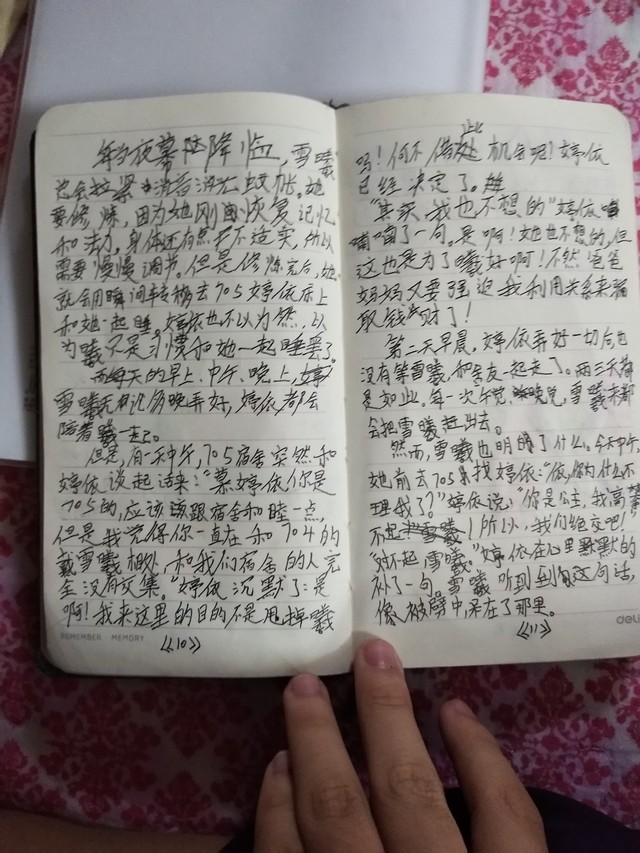 每当夜幕降临，雪曦
总会拉紧
要修炼，因为她刚恢复记忆
和法力。身体还有点不适实，所以
需要慢慢调节。但是修炼完后，她
就会用瞬间转移去705婷依床上
和她一起睡。婷依也不以为然，以
为曦只是习惯和她一起睡罢了。
而每天的早上、中午、晚上，
雪曦无论多晚弄好，婷依都会
陪着曦一起。
但是，有一天中午，705宿舍突然和
婷依谈起话来：“慕婷依你是
705的，应该跟宿舍和睦一点，
但是我觉得你一直在和704的
戴雪曦相处，和我们宿舍的人完
全没有交集。”婷依沉默了：是
啊！我来这里的目的不是甩掉曦
REMEMBER MEMORY
《10》
吗！何不借此机会呢？婷依
已经决定了。
“其实我也不想的”婷依
喃喃了一句。是啊！她也不想的，但
这也是为了曦好啊！不然爸爸
妈妈又要强迫我利用关系来骗
取钱财了！
第二天早晨，婷依弄好一切后也
没有等雪曦，和舍友一起走了。两三天都
是如此。每一次午觉、晚觉，雪曦来都
会把雪曦赶出去。
然而，雪曦也明瞭了什么。今天中午，
她前去705找婷依：“依，你为什么不
理我了？”婷依说：“你是公主，我高攀
不起！所以，我们绝交吧！”
“对不起，雪曦。”婷依在心里默默的
补了一句。雪曦听到这句话，
像被劈中呆在了那里。
deli
《11》